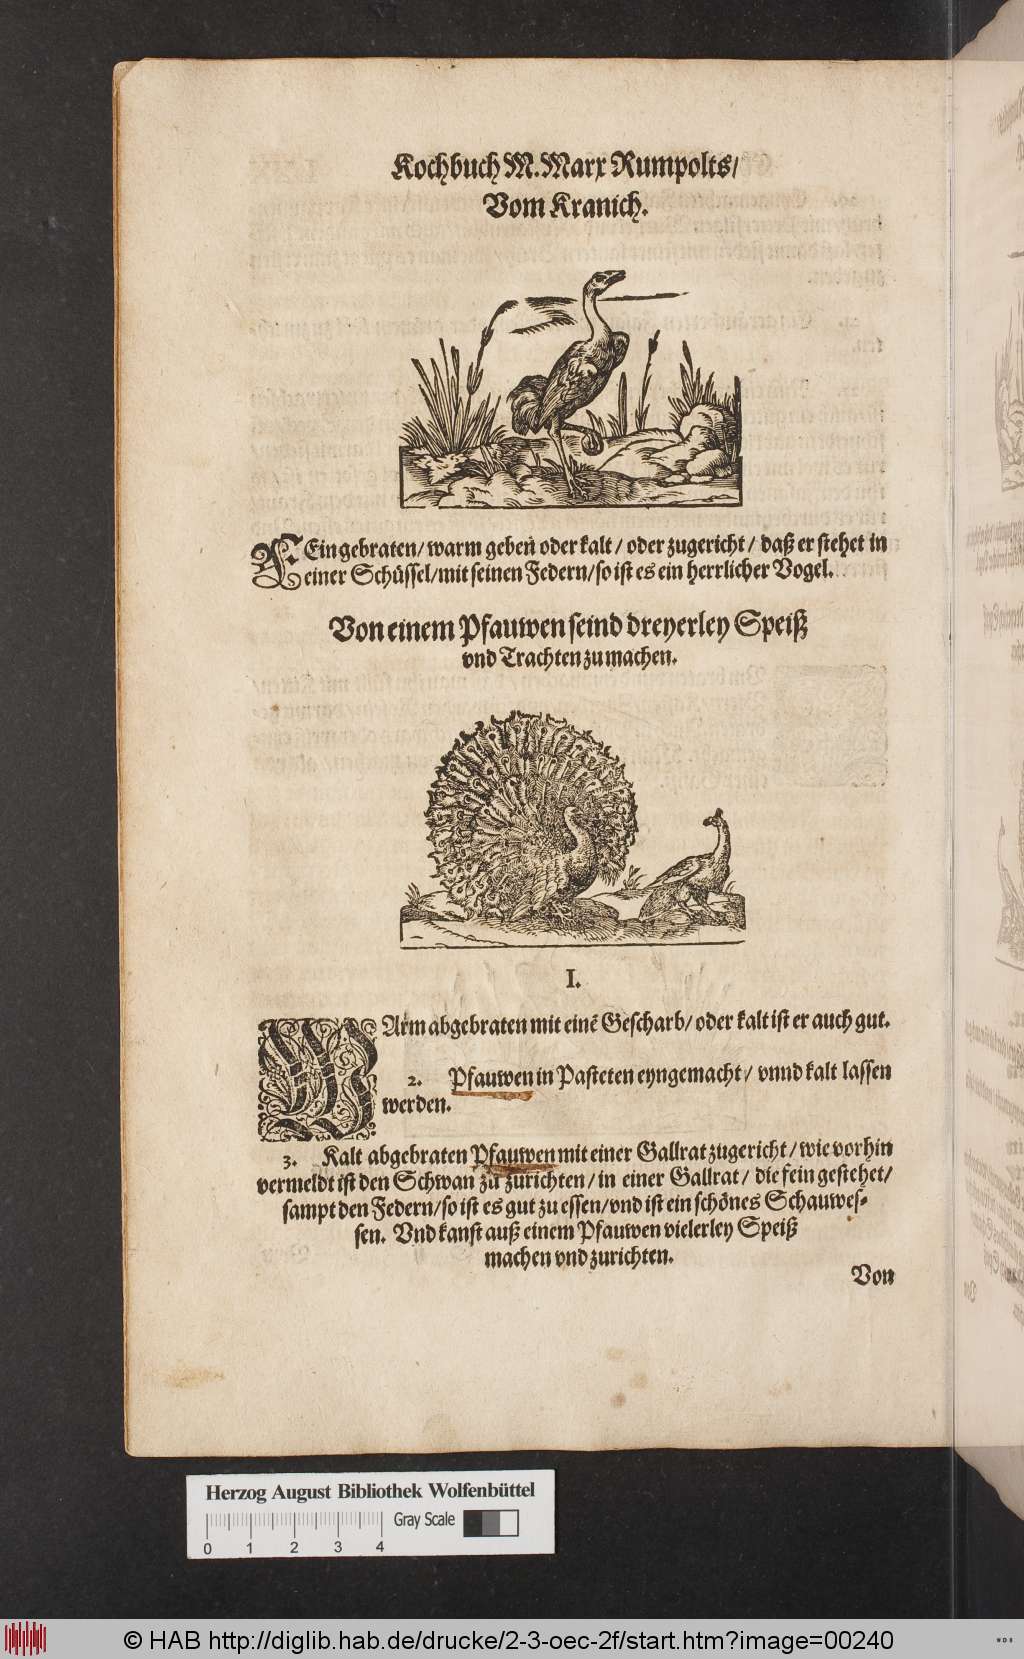 Kochbuch M. Marx Rumpolts/
Vom Kranich.
FEin gebraten/ warm geben oder kalt / oder zugericht / daß er stehet in
einer Schüssel/mit seinen Federn/so ist es ein herrlicher Vogel.
Von einem Pfauwen seind dreyerley Speiß
vnd Trachten zu machen.
I.
WArm abgebraten mit einē Gescharb/ oder kalt ist er auch gut.
2. Pfauwen in Pasteten eyngemacht/ vnnd kalt lassen
werden.
3. Kalt abgebraten Pfauwen mit einer Gallrat zugericht / wie vorhin
vermeldt ist den Schwan zu zurichten / in einer Gallrat / die fein gestehet/
sampt den Federn/so ist es gut zu essen/vnd ist ein schönes Schauwes-
sen. Vnd kanst auß einem Pfauwen vielerley Speiß
machen vnd zurichten.
Von
Herzog August Bibliothek Wolfenbüttel
Gray Scale
0 1 2 3 4
© HAB http://diglib.hab.de/drucke/2-3-oec-2f/start.htm?image=00240